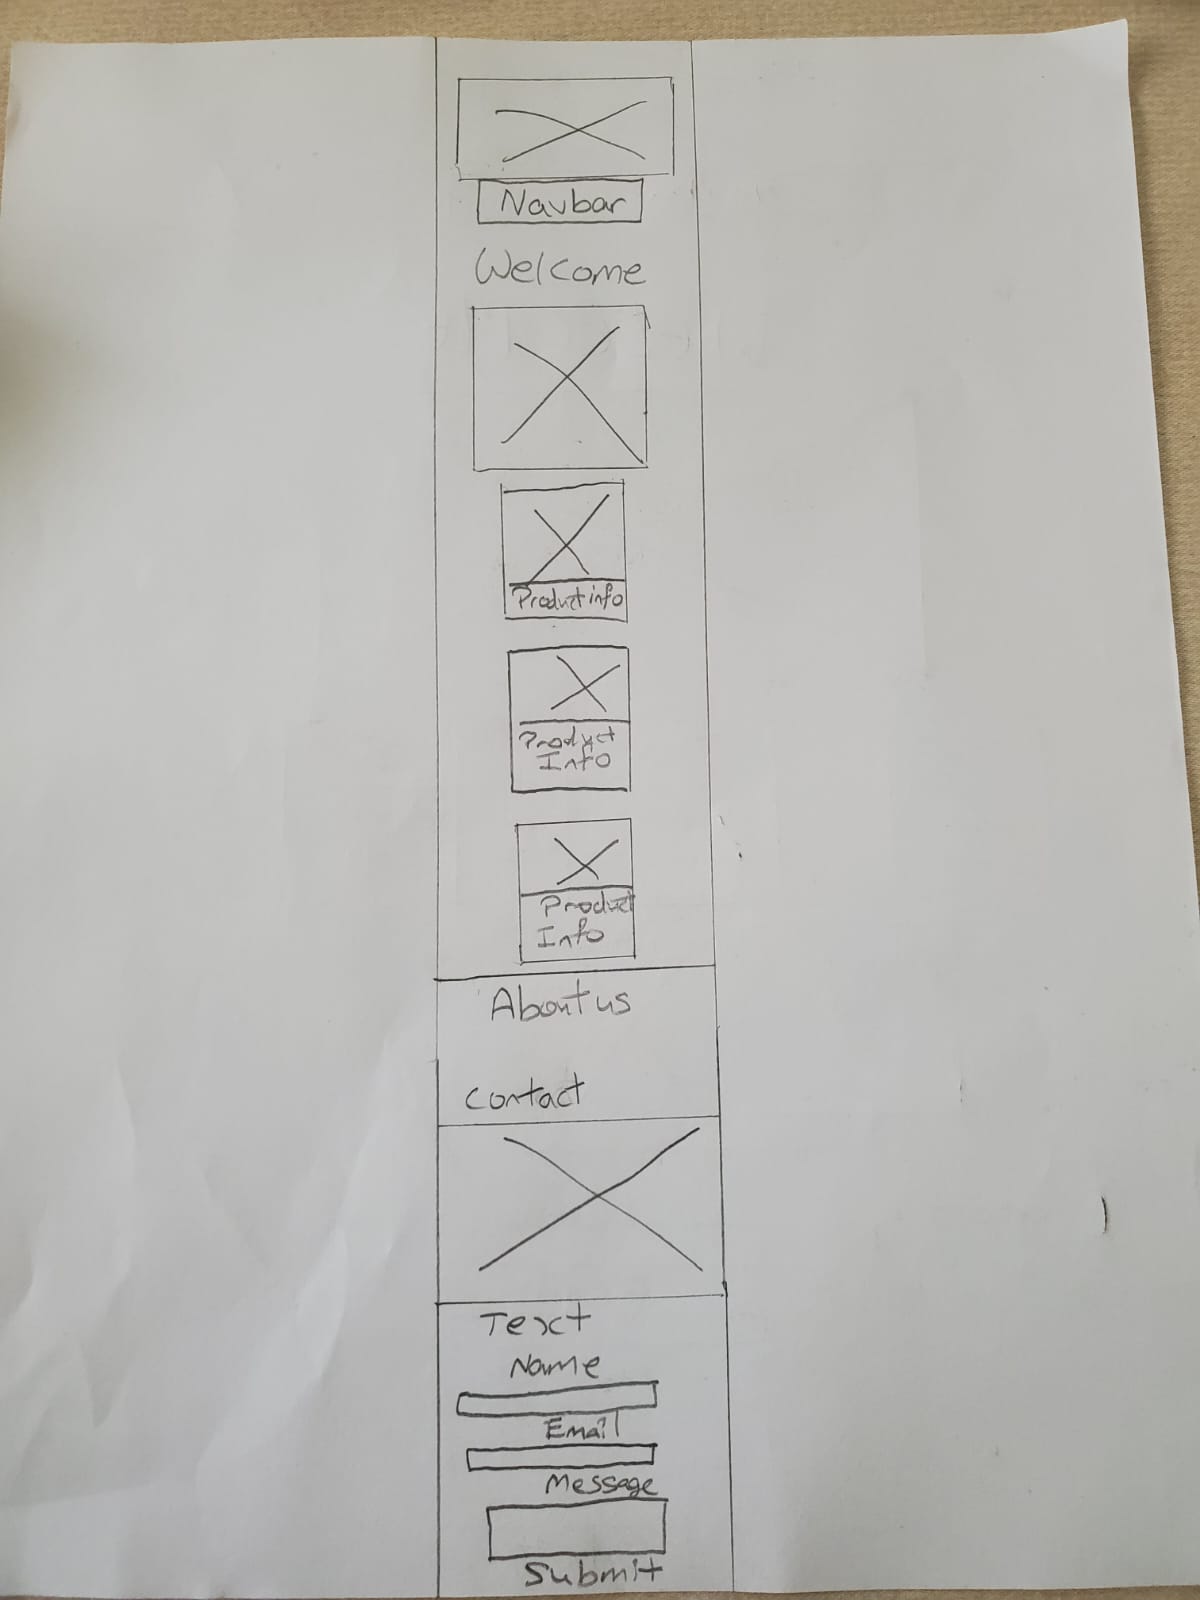 Navbar
Welcome
Product info
Product
Info
Product
Info
About us
Contact
Text
Name
Email
Message
Submit